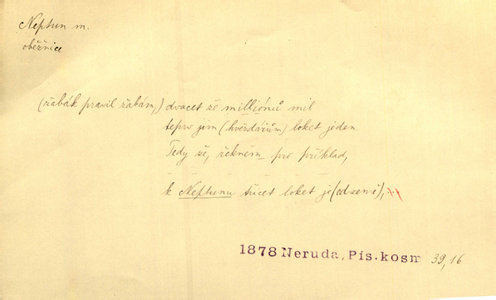 Neptun m.
oběžnice
(žabák pravil žabám,) dvacet že millionů mil
teprv jim (hvězdářům) loket jeden
Tedy že, řeknem pro příklad,
k Neptunu třicet loket je (od země),
1878 Neruda, Pís. kosm 39, 16